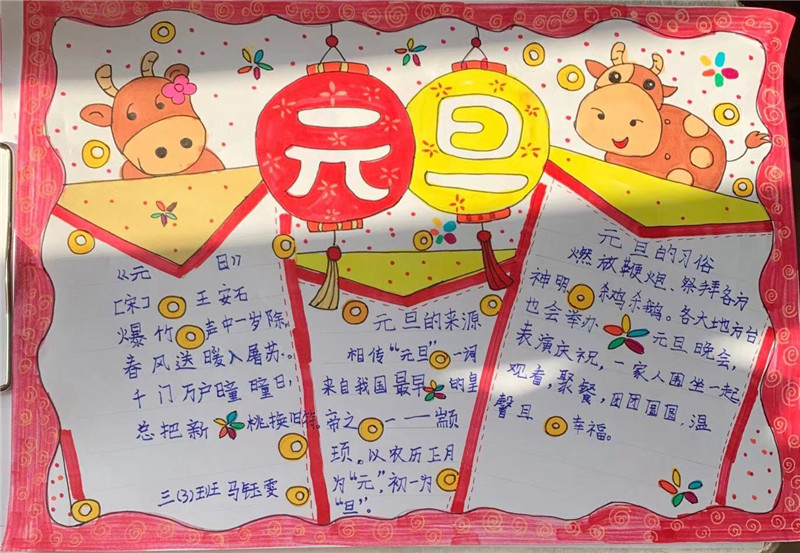 元旦
《元 日》
[宋] 王安石
爆竹声中一岁除,
春风送暖入屠苏.
千门万户曈曈日,
总把新桃换旧符。
三(3)班 马钰雯
元旦的来源
相传“元旦”一词
来自我国最早的皇
帝之一——颛
顼.以农历正月
为“元”,初一为
“旦”。
元旦的习俗
燃放鞭炮.祭拜各方
神明 杀鸡杀鹅。各大地方台
也会举办 元旦晚会,
表演庆祝,一家人围坐一起
观看,聚餐,团团圆圆,温
馨且幸福。